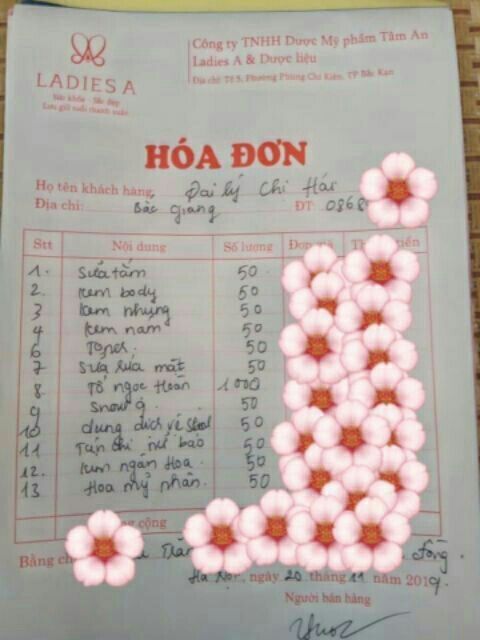 LADIES A
Sức khỏe - Sắc đẹp
Lưu giữ tuổi thanh xuân
Công ty TNHH Dược Mỹ phẩm Tâm An
Ladies A & Dược liệu
Địa chỉ: Tổ 5, Phường Phùng Chí Kiên, TP Bắc Kạn
HÓA ĐƠN
Họ tên khách hàng, Đại lý Chi Hái
Địa chỉ: Bắc Giang ĐT: 0868
Stt Nội dung Số lượng Đơn
1. Sữa tắm 50
2. Kem body 50
3 Kem nhung 50
4 Kem nám 50
6 Toner 50
7 Sữa rửa mặt 50
8. Tố ngọc Hoàn 1000
9 Snow 9. 50
10 dung dịch vệ sinh 50
11 Tán chỉ nữ bảo 50
12. Kem ngân Hoa. 50
13 Hoa mỹ nhân 50
cộng
Bằng
Hà Nội, ngày 20 tháng 11 năm 2019.
Người bán hàng